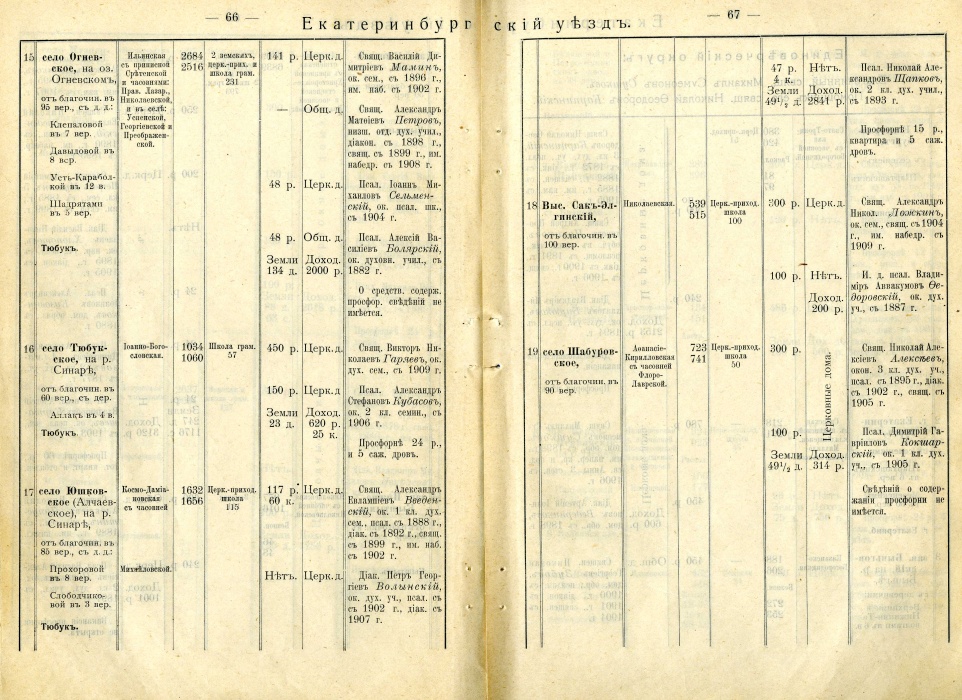 — 66 —
Екатеринбургскій уѣздъ.
— 67 —
15
село Огнев-
ское, на оз.
Огневскомъ,
отъ благочин. въ
95 вер., съ д. д.:
Клепаловой
въ 7 вер.
Давыдовой въ
8 вер.
Усть-Карабол-
кой въ 12 в.
Шадрятами
въ 5 вер.
Тюбукъ.
Ильинская
съ припиской
Срѣтенской
и часовнями:
Прав. Лазар.,
Николаевской,
и въ селѣ:
Успенской,
Георгіевской и
Преображен-
ской.
2684
2516
2 земскихъ,
церк.-прих. и
школа грам.
231
141 р.
Церк.д.
Свящ. Василій Ди-
митріевъ Маминъ,
ок. сем., съ 1896 г.,
им. наб. съ 1902 г.
—
Общ. д.
Свящ. Александръ
Матѳіевъ Петровъ,
низш. отд. дух. учил.,
діакон. съ 1898 г.,
свящ. съ 1899 г., им.
набедр. съ 1908 г.
48 р.
Церк.д.
Псал. Іоаннъ Ми-
хаиловъ Сельмен-
скій, ок. псал. шк.,
съ 1904 г.
48 р.
Общ. д.
Земли
134 д.
Доход.
2000 р.
Псал. Алексій Ва-
силіевъ Болярскій,
ок. духовн. учил., съ
1882 г.
О средств. содерж.
просфор. свѣдѣній не
имѣется.
16
село Тюбук-
ское, на р.
Синарѣ,
отъ благочин. въ
60 вер., съ дер.
Аллакъ въ 4 в.
Тюбукъ.
Іоанно-Бого-
словская.
1034
1060
Школа грам.
57
450 р.
Церк.д.
Свящ. Викторъ Ни-
колаевъ Гаряевъ, ок.
дух. сем., съ 1909 г.
150 р.
Церк.д
Земли
23 д.
Доход.
620 р.
25 к.
Псал. Александръ
Стефановъ Кубасовъ,
ок. 2 кл. семин., съ
1906 г.
Просфорнѣ 24 р.,
и 5 саж. дровъ.
17
село Юшков-
ское (Алчаев-
ское), на р.
Синарѣ,
отъ благочин. въ
85 вер., съ д. д.:
Прохоровой
въ 8 вер.
Слободчико-
вой въ 3 вер.
Тюбукъ.
Космо-Даміа-
новская
съ часовней
Михайловской.
1632
1656
Церк.-приход.
школа
115
117 р.
60 к.
Церк.д.
Свящ. Александръ
Евлампіевъ Введен-
скій, ок. 1 кл. дух.
сем., псал. съ 1888 г.,
діак. съ 1892 г., свящ.
съ 1899 г., им. наб.
съ 1902 г.
Нѣтъ.
Церк.д.
Діак. Петръ Геор-
гіевъ Волынскій,
ок. дух. уч., псал. съ
съ 1902 г., діак. съ
1907 г.
47 р.
4 к.
Земли
49½ д.
Нѣтъ.
Доход.
2841 р.
Псал. Николай Але-
ксандровъ Щапковъ,
ок. 2 кл. дух. учил.,
съ 1893 г.
Просфорнѣ 15 р.,
квартира и 5 саж.
дровъ.
18
Выс. Сакъ-Эл-
гинскій,
отъ благочин. въ
100 вер.
Николаевская.
539
515
Церк.-приход.
школа
100
300 р.
Церк.д.
Свящ. Александръ
Никол. Ложкинъ,
ок. сем., свящ. съ 1904
г., им. набедр. съ
1909 г.
100 р.
Нѣтъ.
Доход.
200 р.
И. д. псал. Влади-
міръ Аввакумовъ Ѳе-
доровскій, ок. дух.
уч., съ 1887 г.
19
село Шабуров-
ское,
отъ благочин. въ
90 вер.
Аѳанасіе-
Кирилловская
съ часовней
Флоро-
Лаврской.
723
741
Церк.-приход.
школа
50
300 р.
Церковные дома.
Свящ. Николай Але-
ксіевъ Алексѣевъ,
окон. 3 кл. дух. уч.,
псал. съ 1895 г., діак.
съ 1902 г., свящ. съ
1905 г.
100 р.
Земли
49½ д.
Доход.
314 р.
Псал. Димитрій Га-
вріиловъ Кокшар-
скій, ок. 1 кл. дух.
уч., съ 1905 г.
Свѣдѣній о содер-
жаніи просфорни не
имѣется.